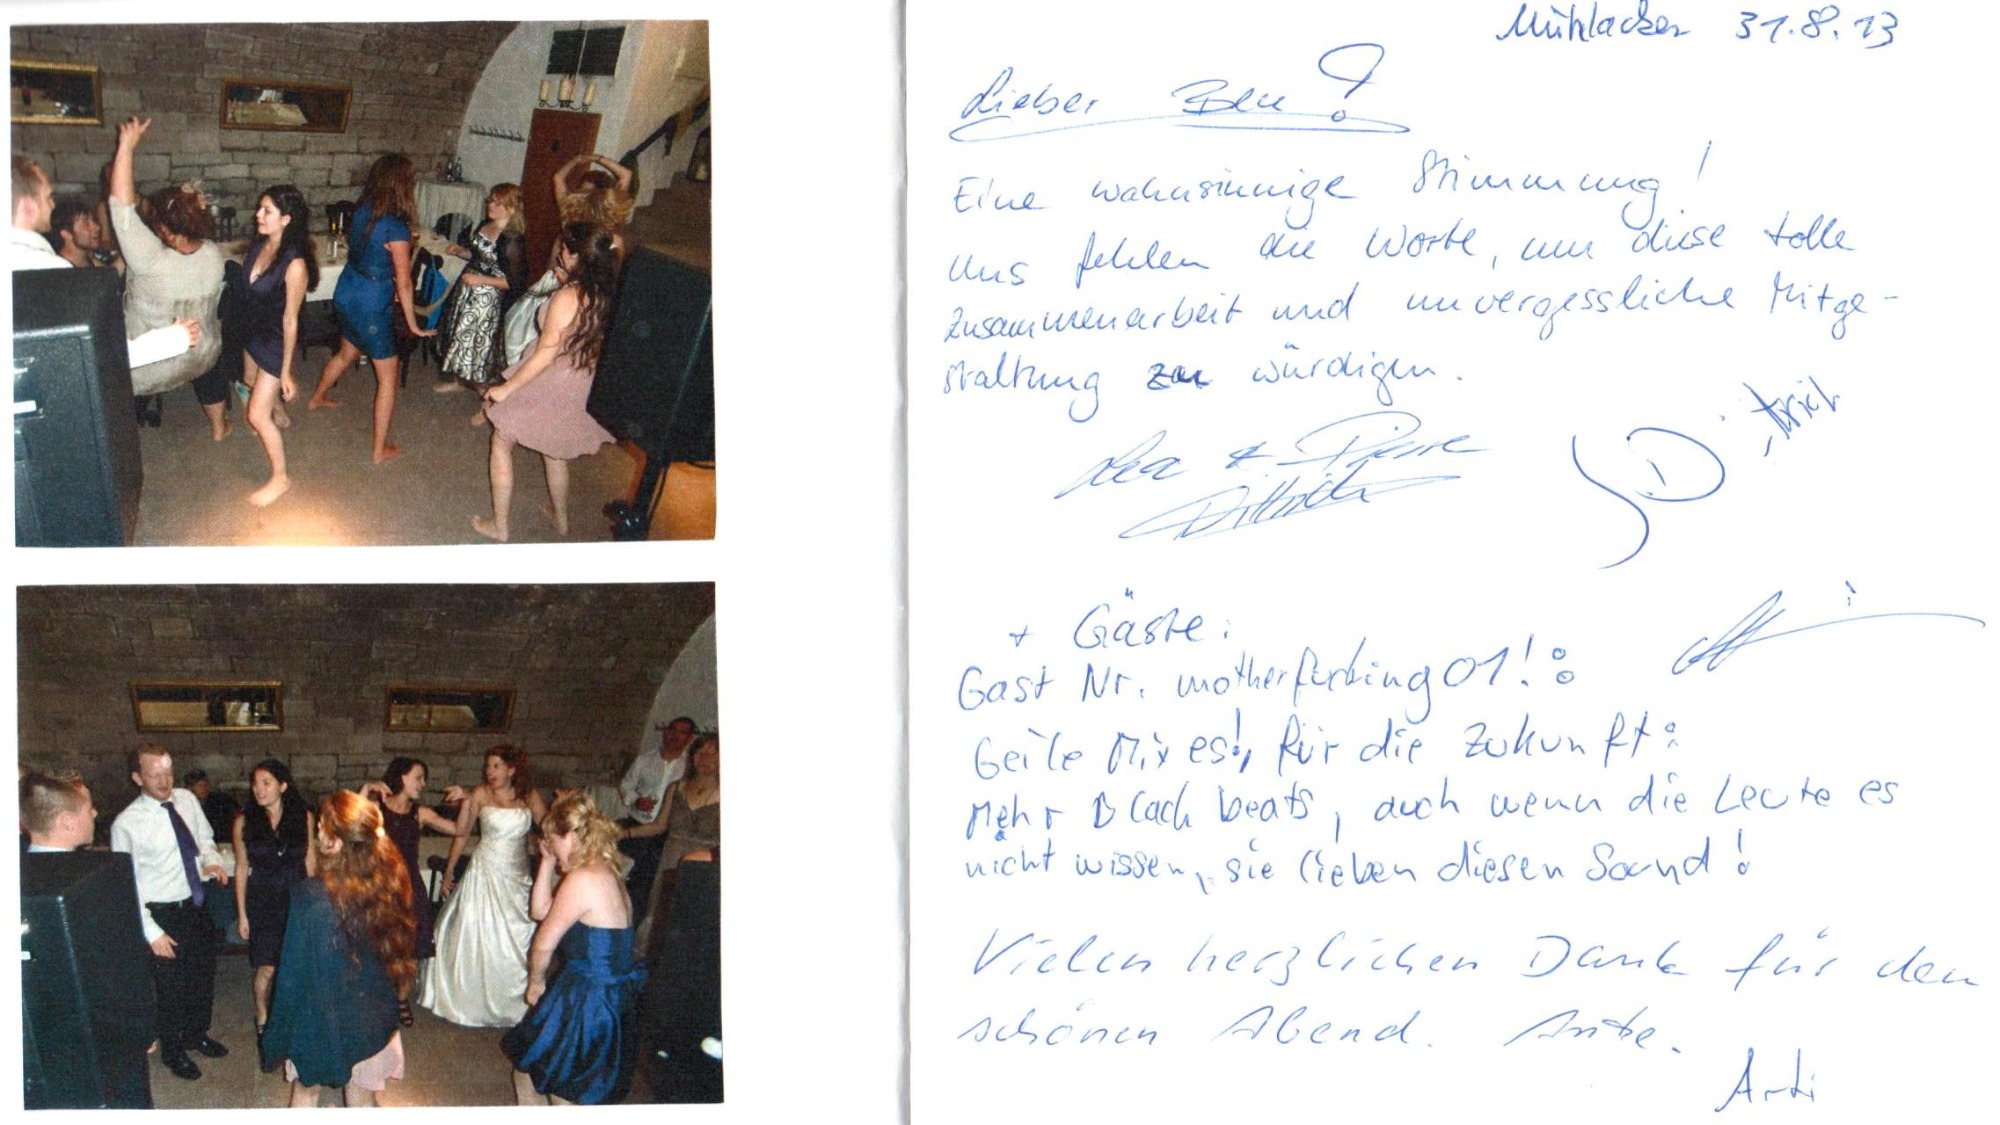 Mühlacker 31.8.13
Lieber Ben!
Eine wahnsinnige Stimmung!
Uns fehlen die Worte, um diese tolle
Zusammenarbeit und unvergessliche Mitge-
staltung zu würdigen.
Lea & Pierre
Dittrich
+ Gäste:
Gast Nr. motherfucking 01!:
Geile Mixes!, für die Zukunft:
Mehr Black beats, auch wenn die Leute es
nicht wissen, sie lieben diesen Sound!
Vielen herzlichen Dank für den
schönen Abend.